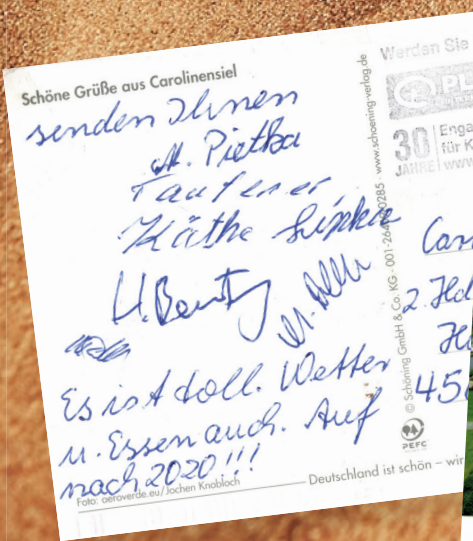 Schöne Grüße aus Carolinensiel
senden Ihnen
M. Pietka
Käthe
H.
Es ist toll. Wetter
u. Essen auch. Auf
nach 2020!!!
Foto: aeroverde.eu/Jochen Knobloch
Deutschland ist schön – wir
© Schöning GmbH & Co. KG · 001-264 0285 · www.schoening-verlag.de
PEFC
Werden Sie
PL
30
JAHRE
Enga
für K
www
2. Hd
45